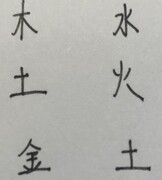 木 水
土 火
金 土